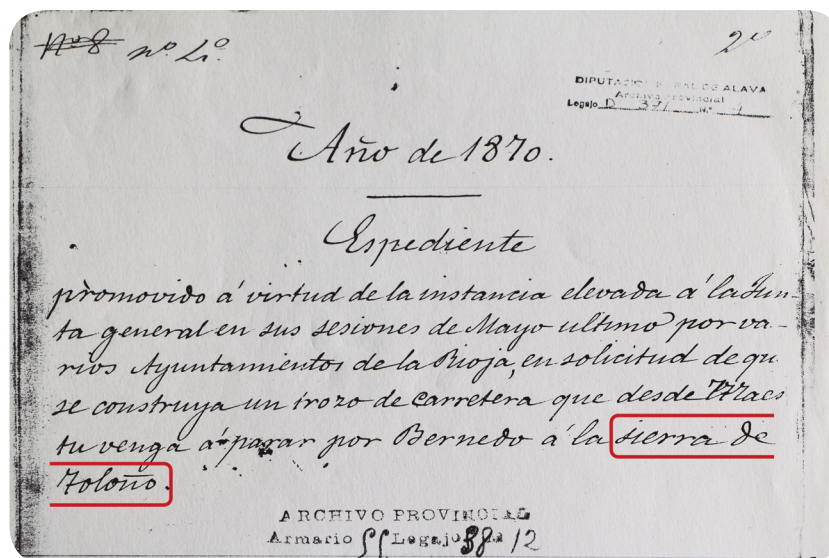 Nº 8 nº 41º
2º
DIPUTACION FORAL DE ALAVA
Archivo Provincial
Legajo D 371 Nº
Año de 1870.
Espediente
promovido á virtud de la instancia elevada á la Jun-
ta general en sus sesiones de Mayo ultimo por va-
rios Ayuntamientos de la Rioja, en solicitud de qu
se construya un trozo de carretera que desde Maes
tu venga á parar por Bernedo á la sierra de
Toloño.
ARCHIVO PROVINCIAL
Armario Legajo 38 12